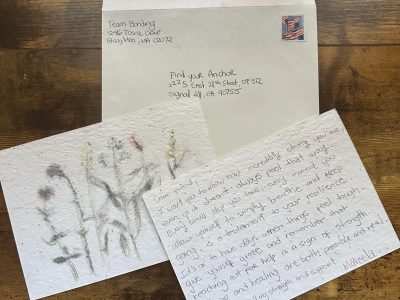 Team Bonding
Stoughton, MA 02072
Find Your Anchor
2225 East 28th Street, STE 512
Signal Hill, CA 90755
Dear friend,
I want you to know how incredibly strong you are,
even if it doesn't always feel that way.
Every small step you take, every moment you
allow yourself to simply breathe and keep
going, is a testament to your resilience.
It's ok to have days when things feel tough.
give yourself grace and remember that
reaching out for help is a sign of strength.
and healing are both possible and real.
strength and support